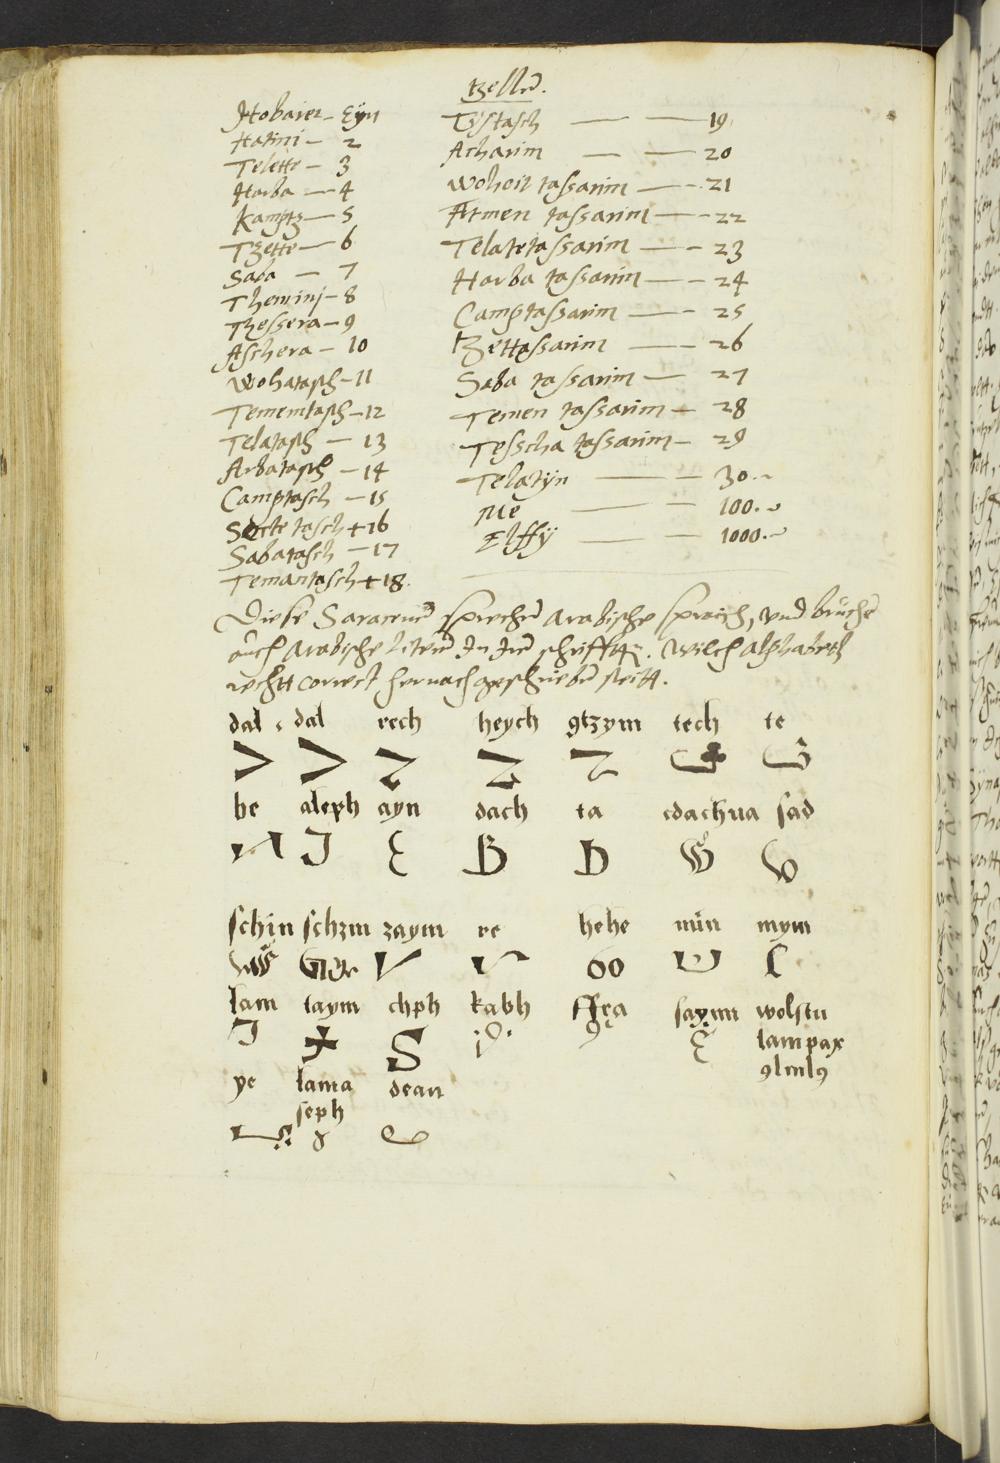 tzellen.
Hobaier - Eyn
Hatini - 2
Telette - 3
Harba - 4
Kamptz - 5
Tzette - 6
Saba - 7
Themini - 8
Thessera - 9
Aschera - 10
Wohatasch - 11
Tememtasch - 12
Telatasch - 13
Arbatasch - 14
Camptasch - 15
tasch + 16
Sabatasch - 17
Temantasch + 18.
Tzstasch — — 19
Acharim — — 20
Wohoit tassarim — - 21
Atmen tassarim — - 22
Telatetassarim — - 23
Harba tassarim — - 24
Camptassarim — - 25
tzettassarim — 26
Saba tassarim — 27
Temen tassarim — 28
Tesscha tassarim - 29
Telatyn — - 30.
Me — - 100.
Elffy — - 1000.
Diese Saracenen sprechen Arabische sprach, und bruchen
auch Arabische literen In Iren schrifften. Wilch alphabeth
recht correct hernach geschrieben steitt.
dal dal rech heych gtzym tech te
be aleph ayn dach ta cdachua sad
schin schzm zaym re hehe nun mym
lam taym chph kabh ffra saymm wolstu
lampax
ye lama dean
seph